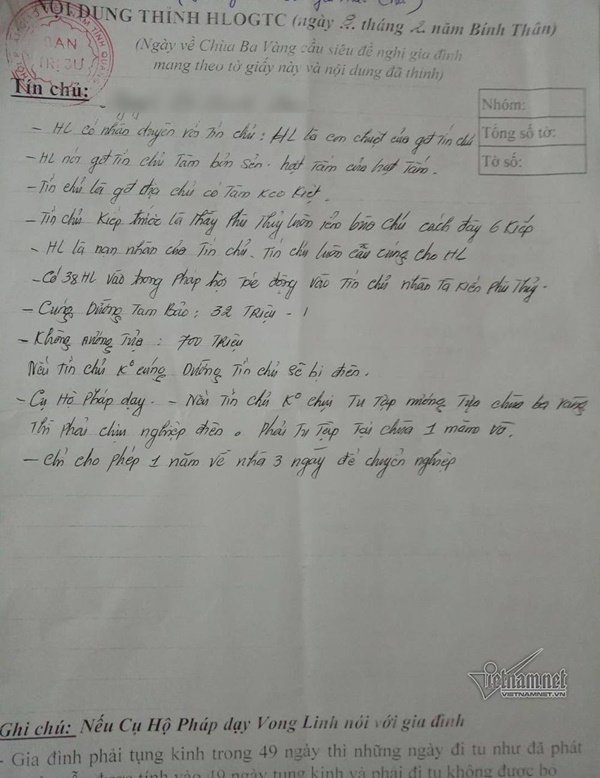 NỘI DUNG THỈNH HLOGTC (ngày 9. tháng 2. năm Bính Thân)
(Ngày về Chùa Ba Vàng cầu siêu đề nghị gia đình
mang theo tờ giấy này và nội dung đã thỉnh)
BAN
TRỊ SỰ
Tín chủ:
Nhóm:
Tổng số tờ:
Tờ số:
- HL có nhân duyên với Tín chủ: HL là con chuột của gđ Tín chủ
- HL nói gđ Tín chủ Tâm bỏn sẻn. hạt Tấm của hạt Tấm.
- Tín chủ là gđ địa chủ có Tâm keo kiệt.
- Tín chủ kiếp trước là thầy Phù Thủy luôn yểm bùa chú cách đây 6 kiếp
- HL là nạn nhân của Tín chủ. Tín chủ luôn cầu cúng cho HL
- Có 38 HL vào trong Pháp hội tác động vào Tín chủ nhân Tà kiến Phù Thủy.
- Cúng Dường Tam Bảo: 32 Triệu - 1
- Không nương tựa: 700 Triệu
Nếu Tín chủ K° cúng Dường Tín chủ sẽ bị điên.
- Cụ Hộ Pháp dạy. - Nếu Tín chủ K° chịu Tu Tập nương Tựa chùa ba vàng
Thì phải chịu nghiệp điên. Phải Tu Tập Tại chùa 1 năm
- Chỉ cho phép 1 năm về nhà 3 ngày để chuyển nghiệp
Vietnam.net
VIETNAMNET.VN
Ghi chú: Nếu Cụ Hộ Pháp dạy Vong Linh nói với gia đình
- Gia đình phải tụng kinh trong 49 ngày thì những ngày đi tu như đã phát
được tính vào 49 ngày tụng kinh và phải đi tu không được bỏ